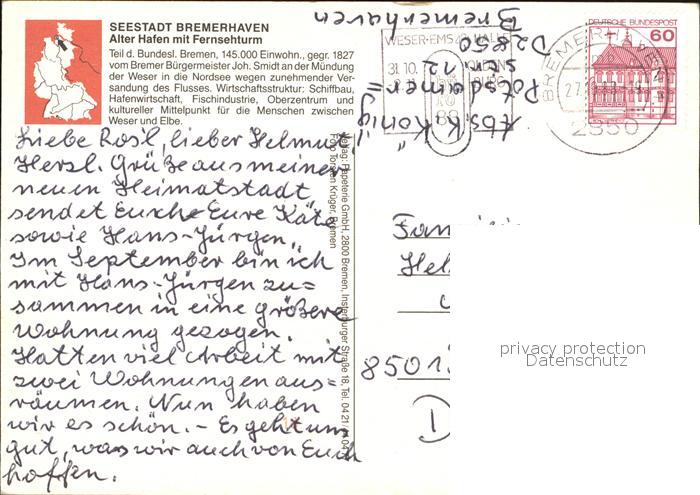 SEESTADT BREMERHAVEN
Alter Hafen mit Fernsehturm
Teil d. Bundesl. Bremen, 145.000 Einwohn., gegr. 1827
vom Bremer Bürgermeister Joh. Smidt an der Mündung
der Weser in die Nordsee wegen zunehmender Ver-
sandung des Flusses. Wirtschaftsstruktur: Schiffbau,
Hafenwirtschaft, Fischindustrie, Oberzentrum und
kultureller Mittelpunkt für die Menschen zwischen
Weser und Elbe.
Liebe Rosl, lieber Helmut!
Herzl. Grüße aus meiner
neuen Heimatstadt
sendet Euch Eure Käte
sowie Hans-Jürgen.
Im September bin ich
mit Hans-Jürgen zu=
sammen in eine größere
Wohnung gezogen.
Hatten viel Arbeit mit
zwei Wohnungen aus=
räumen. Nun haben
wir es schön. - Es geht uns
gut, was wir auch von Euch
hoffen.
Verlag: Papeterie GmbH, 2800 Bremen, Insterburger Straße 18, Tel. 04 21/
Foto Torsten Krüger, Bremen
Abs. K. König
Potsdamer=
str. 12
D 2850
Bremerhaven
WESER-EMS
31.10.
DEUTSCHE BUNDESPOST
60
BREMERHAVEN
2850
Fam
Hel
8501
D
privacy protection
Datenschutz